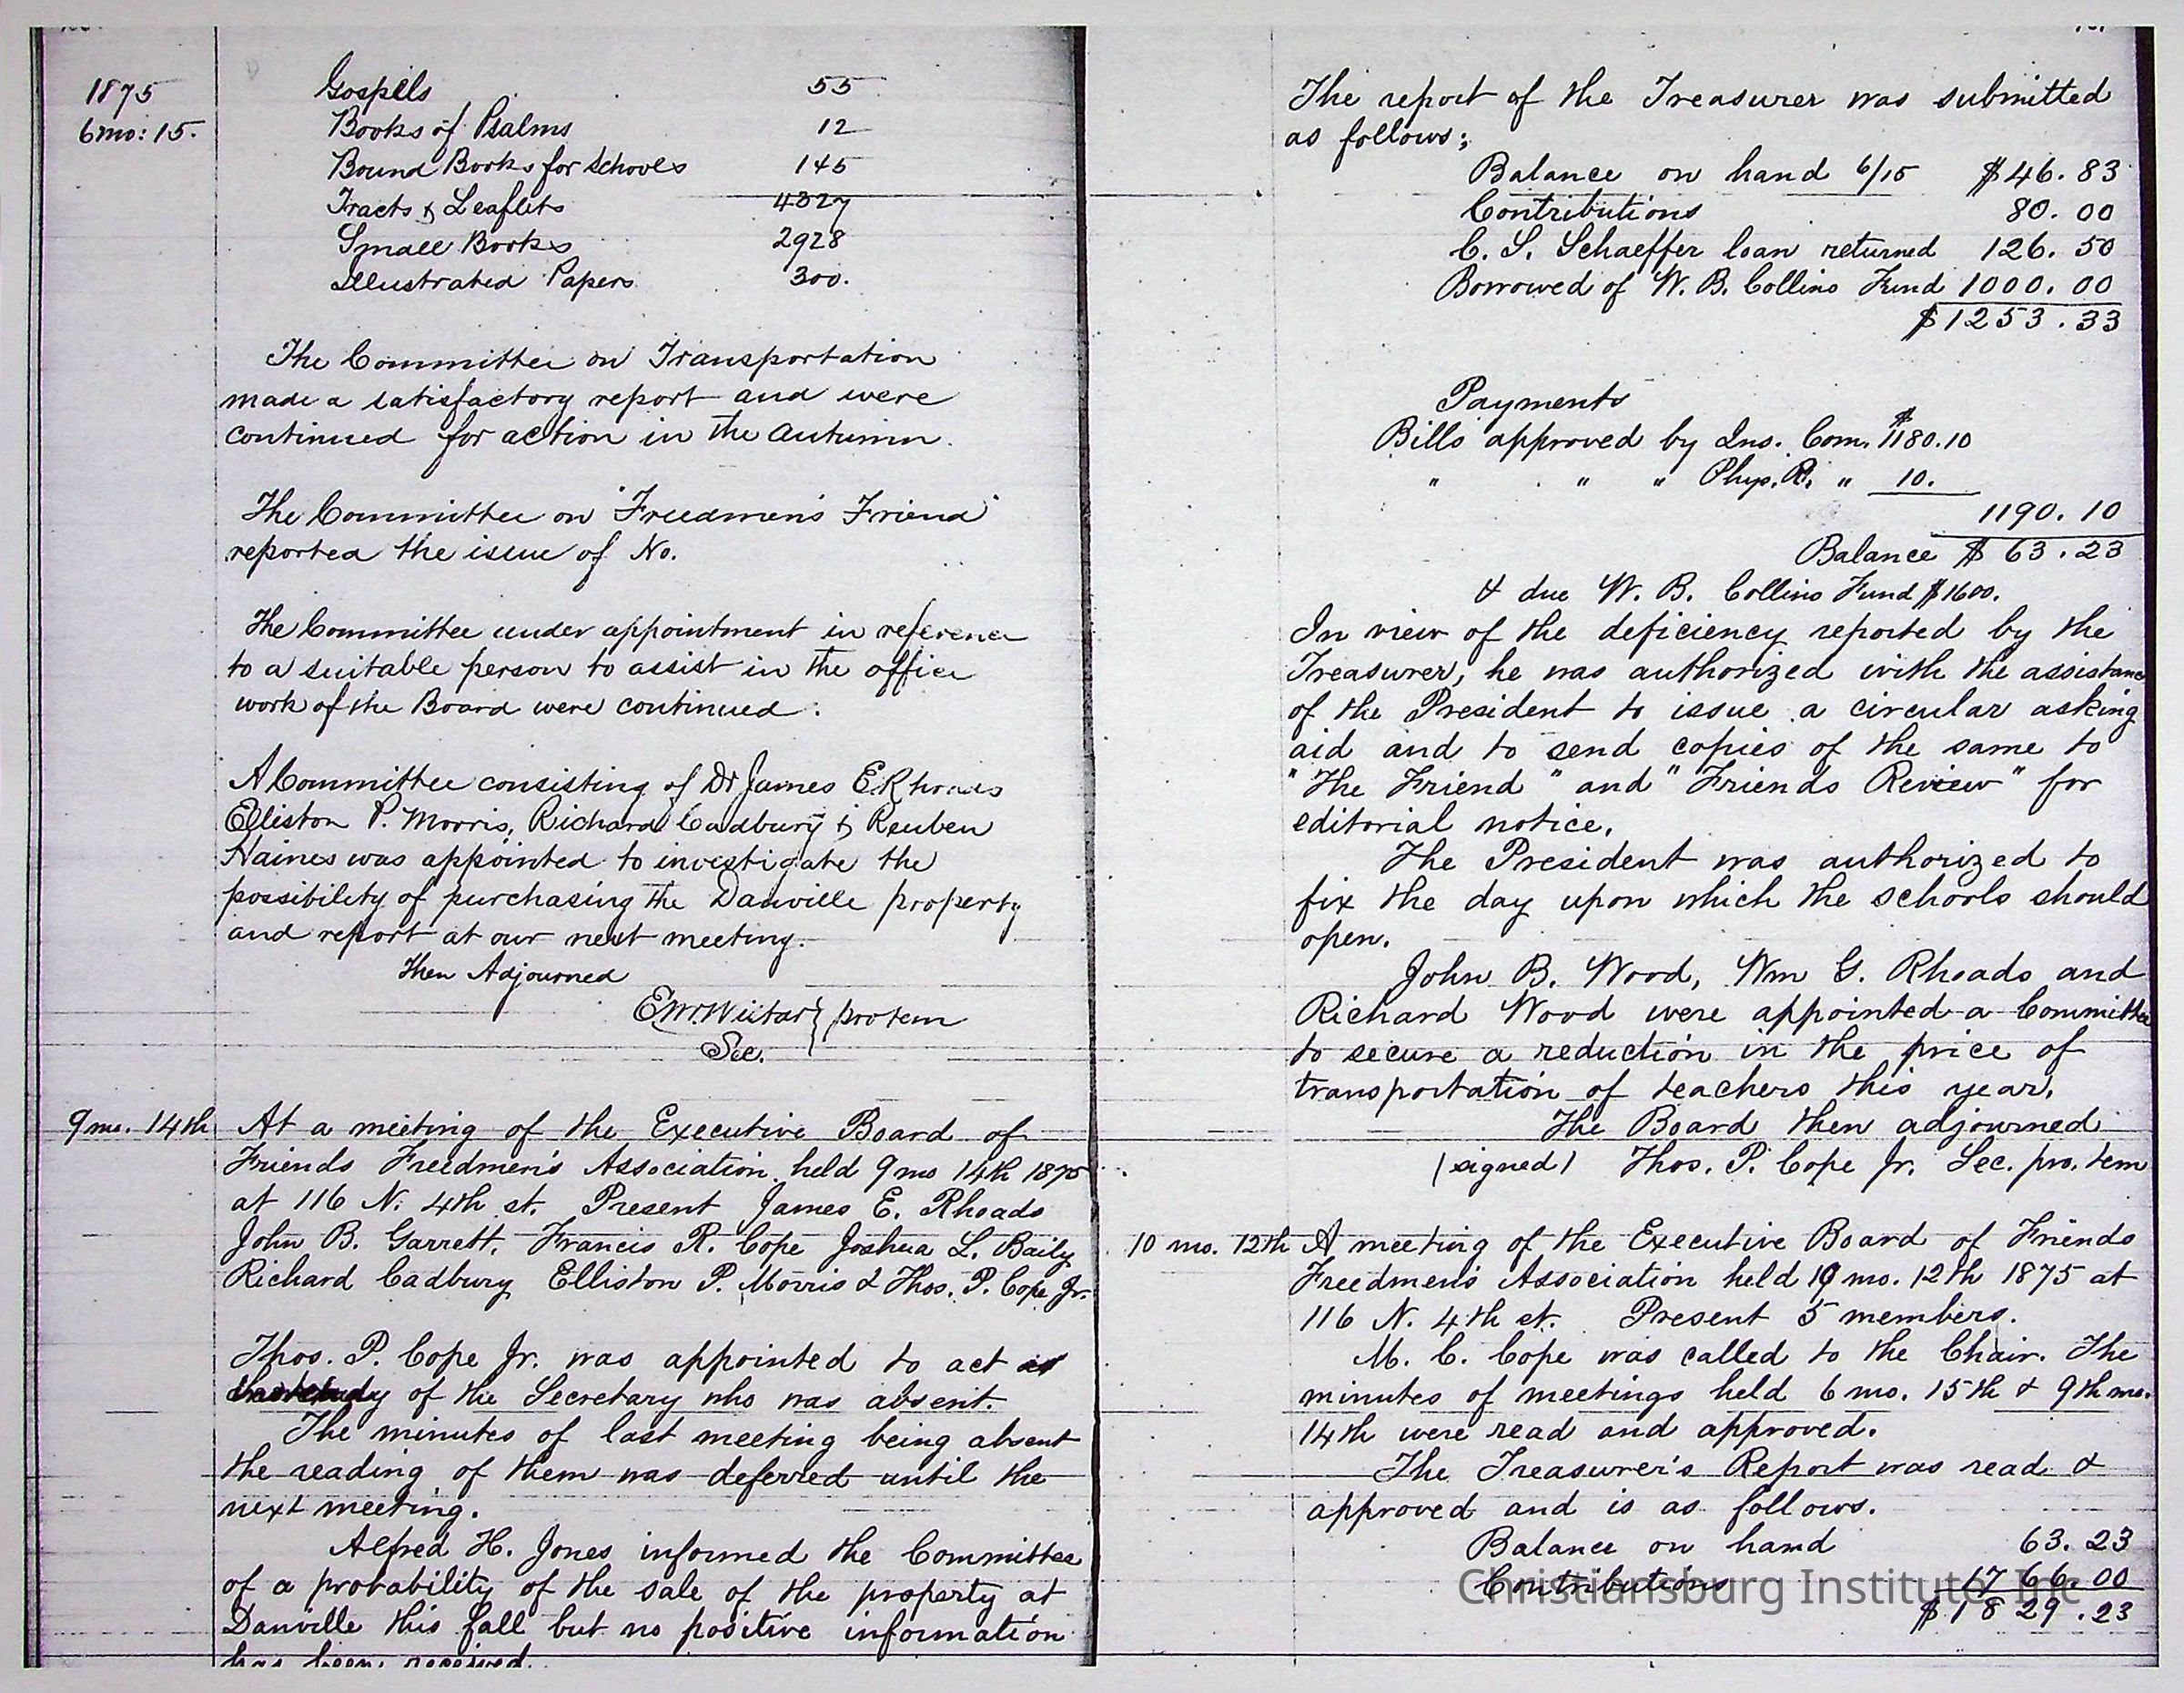 1875
6mo: 15.
Gospells 55
Books of Psalms 12
Bound Books for Schools 145
Tracts & Leaflets 4327
Small Books 2928
Illustrated Papers 300.
The Committee on Transportation
made a satisfactory report and were
continued for action in the Autumn.
The Committee on "Freedmen's Friend"
reported the issue of No.
The Committee under appointment in reference
to a suitable person to assist in the office
work of the Board were continued.
A Committee consisting of Dr James E Rhoads
Elliston P. Morris, Richard Cadbury & Reuben
Haines was appointed to investigate the
possibility of purchasing the Danville property
and report at our next meeting.
Then Adjourned
E M. Wistar } protem
Sec.
9 mo. 14th At a meeting of the Executive Board of
Friends Freedmen's Association held 9 mo 14th 1875
at 116 N. 4th st. Present James E. Rhoads
John B. Garrett, Francis R. Cope Joshua L. Baily
Richard Cadbury Elliston P. Morris & Thos. P. Cope Jr.
Thos. P. Cope Jr. was appointed to act
of the Secretary who was absent.
The minutes of last meeting being absent
the reading of them was deferred until the
next meeting.
Alfred H. Jones informed the Committee
of a probability of the sale of the property at
Danville this fall but no positive information
has been received.
The report of the Treasurer was submitted
as follows;
Balance on hand 6/15 $46.83
Contributions 80.00
C. S. Schaeffer loan returned 126.50
Borrowed of W. B. Collins Fund 1000.00
$1253.33
Payments
Bills approved by Ins. Com. $1180.10
" " " Phys. R. " 10.
1190.10
Balance $ 63.23
& due W. B. Collins Fund $1600.
In view of the deficiency reported by the
Treasurer, he was authorized with the assistance
of the President to issue a circular asking
aid and to send copies of the same to
"The Friend" and "Friends Review" for
editorial notice.
The President was authorized to
fix the day upon which the schools should
open.
John B. Wood, Wm G. Rhoads and
Richard Wood were appointed a Committee
to secure a reduction in the price of
transportation of teachers this year.
The Board then adjourned
(signed) Thos. P. Cope Jr. Sec. pro. tem
10 mo. 12th A meeting of the Executive Board of Friends
Freedmen's Association held 10 mo. 12th 1875 at
116 N. 4th st. Present 5 members.
M. C. Cope was called to the Chair. The
minutes of meetings held 6 mo. 15th & 9th mo.
14th were read and approved.
The Treasurer's Report was read &
approved and is as follows.
Balance on hand 63.23
Contributions 1766.00
$1829.23
Christiansburg Institute, Inc